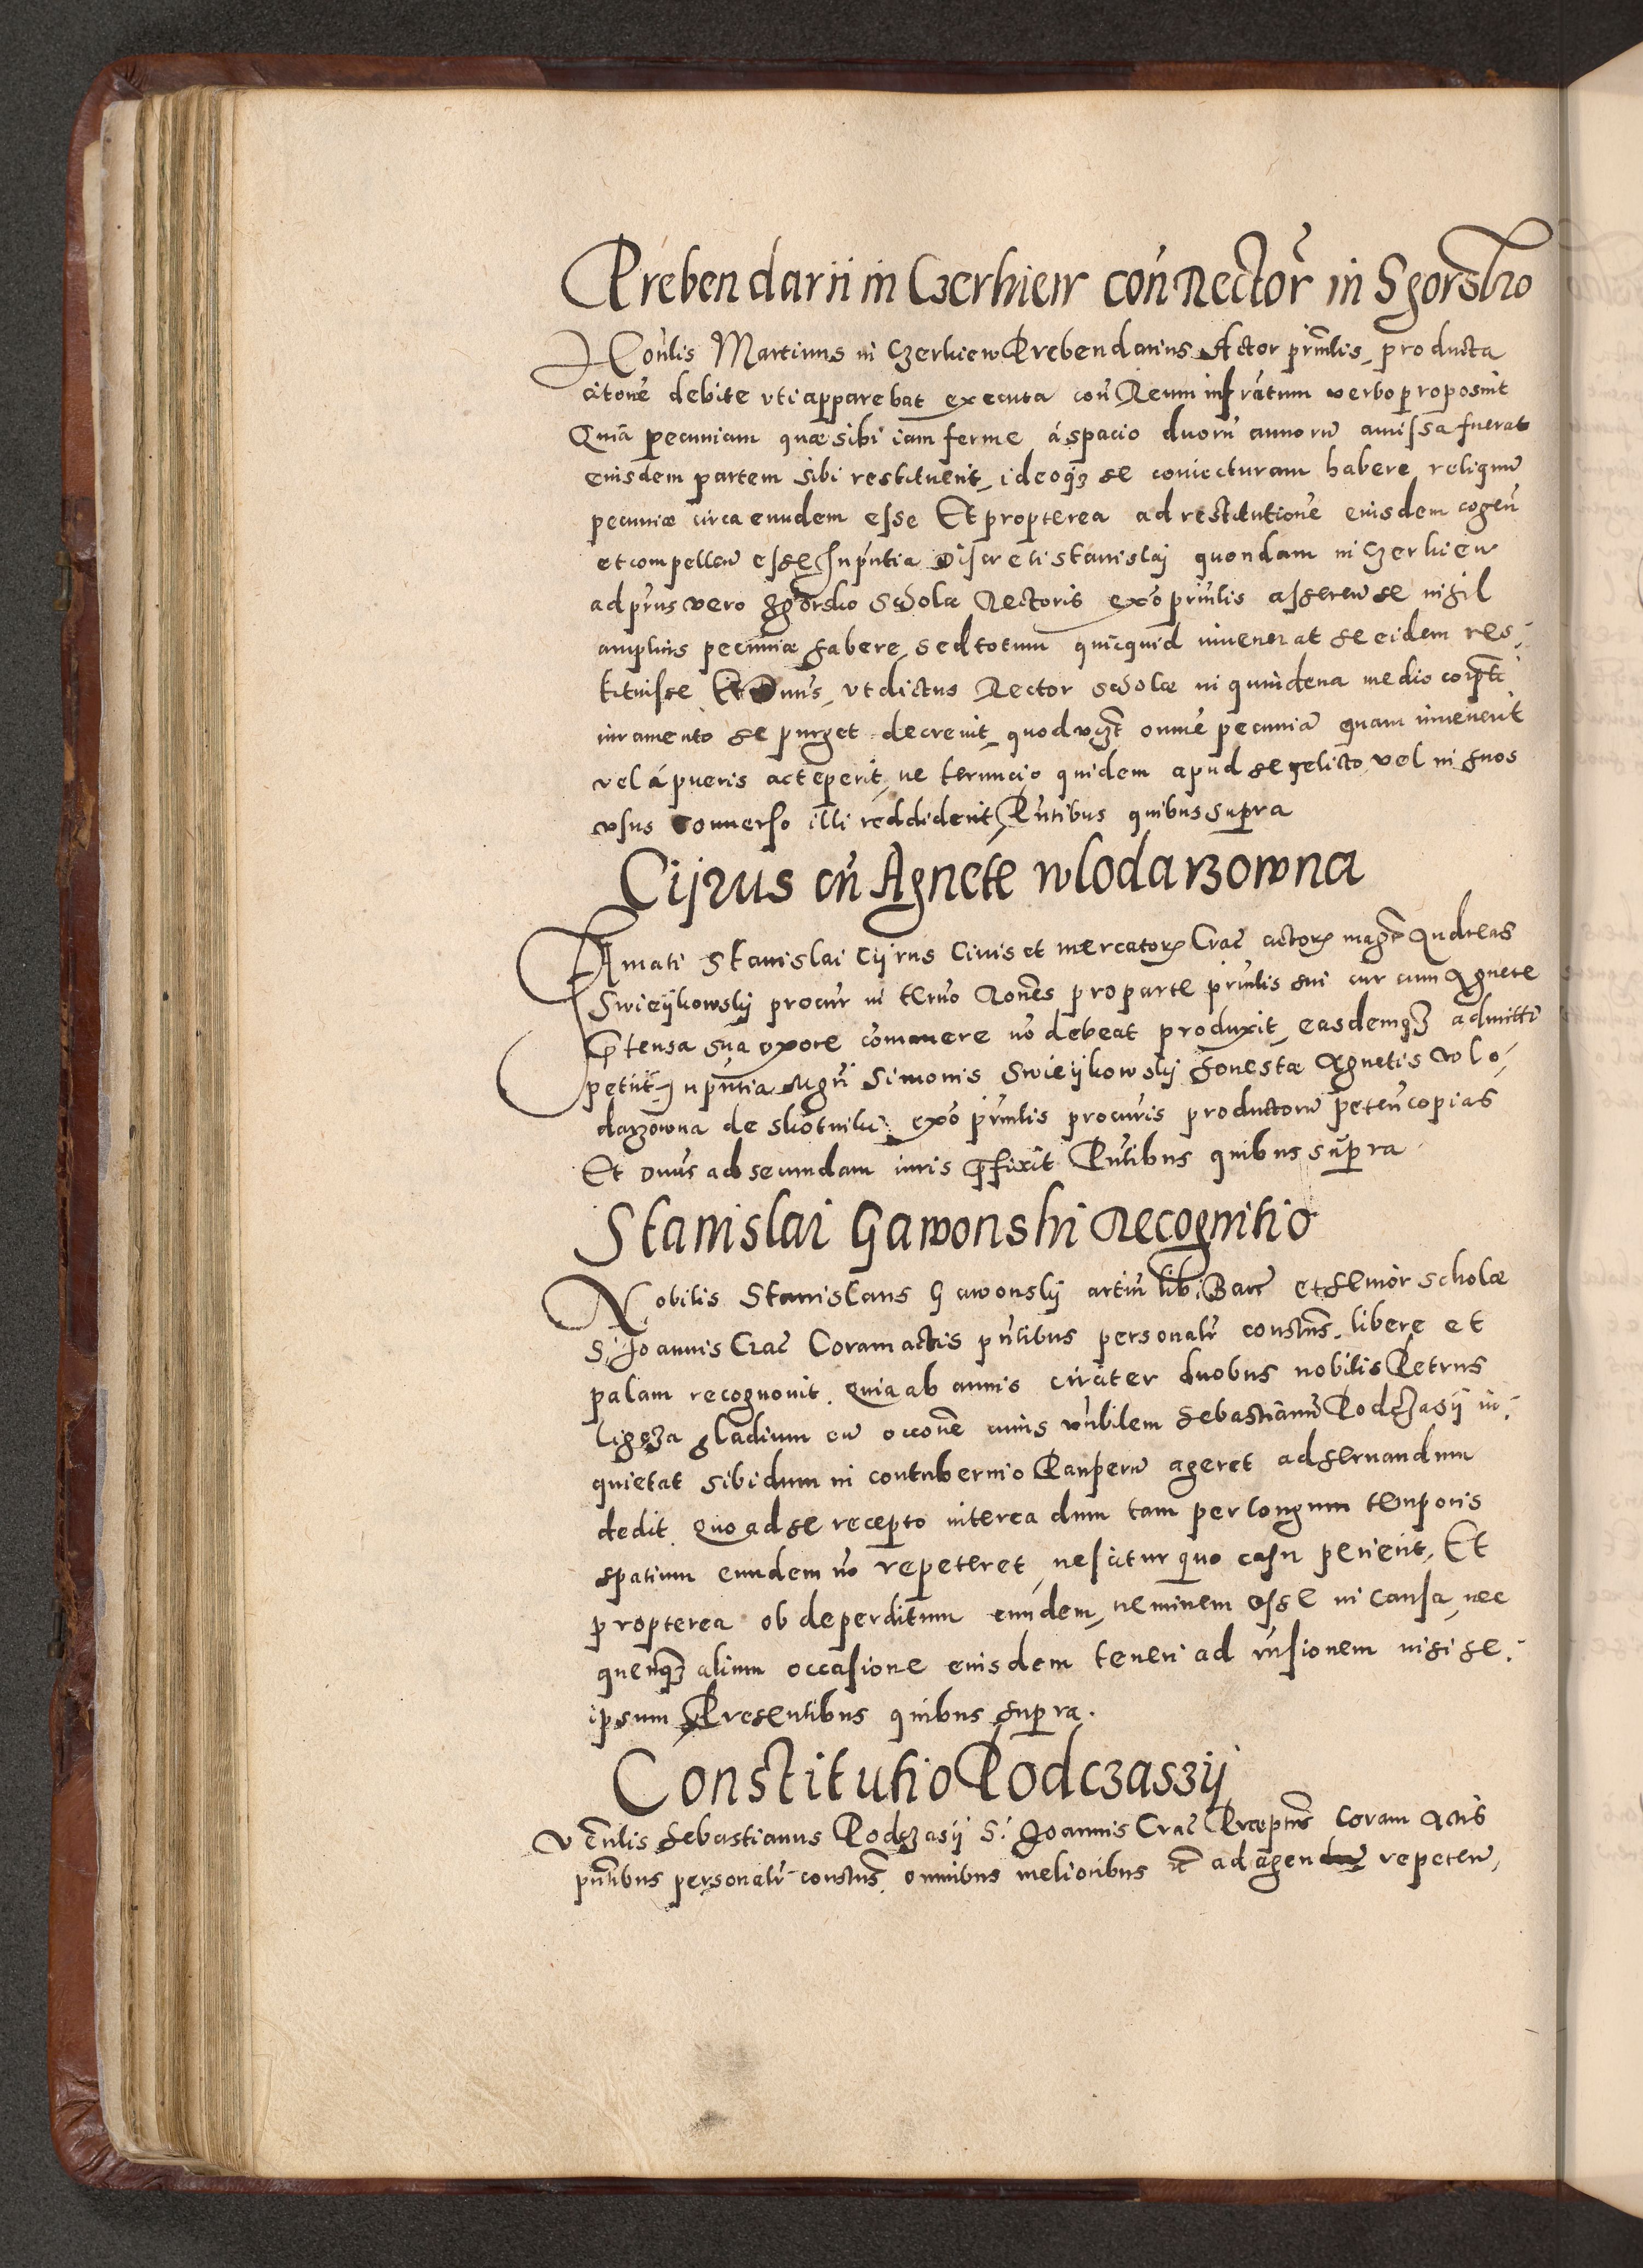 Prebendarii in Czerkiew coñ Rectoř in Sgorsko
Hoñlis Martinus in Czerkiew Prebendarius Actor prñlis, producta
citoné debite uti apparebat executa coñ Reum infratum verbo proposuit
Quia pecuniam quæ sibi iam ferme á spacio duorũ annorũ amissa fuerat
eiusdem partem sibi restituerit, ideoqʒ se coniecturam habere reliquũ
pecuniæ circa eundem esse Et propterea ad restitutionẽ eiusdem cogeñ
et compelleñ esse In pñtia Discreti Stanislaj quondam in Czerkiew
ad p̃ns vero Sgorsko Scholæ Rectoris exõ prñlis asserẽn se nihil
amplius pecuniæ habere, sed totum quicquid invenerat se eidem res-
tituisse Et Dnus, ut dictus Rector scholæ in quindena medio corp̃ti
iuramento se purget decrevit, quod vʒt omnẽ pecuniã quam invenerit
vel á pueris acceperit, ne teruncio quidem apud se relicto, vel in suos
usus converso illi reddiderit, Pñtibus quibus supra
Cijrus cũ Agnete wlodarzowna
Amati Stanislai Cijrus Civis et mercator Crac̃ actor magr̃ Andreas
Swieijkowskij procur in termõ Rones pro parte prñlis sui cur cum Agnete
p̃tensa sua uxore comanere nõ debeat produxit, easdemqʒ admitti
petiit, In pñtia Mgri Simonis Swieijkowskij honestæ Agnetis wlo-
darzowna de Skotniki exõ prñlis procuris productorũ peteñ copias
Et Dnus ad secundam iuris p̃fixit Pñtibus quibus supra
Stanislai Gawonski Recognitio
Nobilis Stanislaus Gawonskij artiũ lib: Bacc̃ et senior scholæ
S. Joannis Crac̃ Coram actis pñtibus personalr̃ constñs, libere et
palam recognovit. Quia ab annis circiter duobus nobilis Petrus
Ligęza gladium cũ occonẽ cuius vñbilem Sebastianũ Podczasij in-
quietat sibi dum in contubernio Pauperũ ageret ad servandum
dedit. Quo ad se recepto interea dum tam per longum temporis
spatium eundem nõ repeteret, nescitur quo casu perierit, Et
propterea ob deperditum eundem, neminem esse in causa, nec
quenqʒ alium occasione eiusdem teneri ad rñsionem nisi se-
ipsum Presentibus quibus supra.
Constitutio Podczaszij
Venñlis Sebastianus Podczasij S. Joannis Crac̃ Præceptus Coram Actis
pñtibus personalr̃ constñs, omnibus melioribus ac̃ ad agen repeteñ,